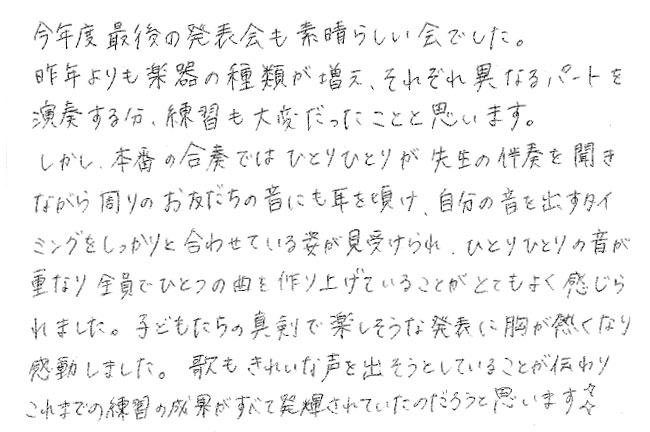 今年度最後の発表会も素晴らしい会でした。
昨年よりも楽器の種類が増え、それぞれ異なるパートを
演奏する分、練習も大変だったことと思います。
しかし、本番の合奏ではひとりひとりが先生の伴奏を聞き
ながら周りのお友だちの音にも耳を傾け、自分の音を出すタイ
ミングをしっかりと合わせている姿が見受けられ、ひとりひとりの音が
重なり全員でひとつの曲を作り上げていることがとてもよく感じら
れました。子どもたちの真剣で楽しそうな発表に胸が熱くなり
感動しました。歌もきれいな声を出そうとしていることが伝わり
これまでの練習の成果がすべて発揮されていたのだろうと思います☆☆